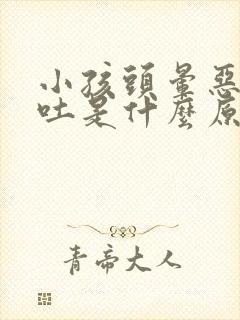 小孩頭暈惡
吐是什麼原
青帝大人